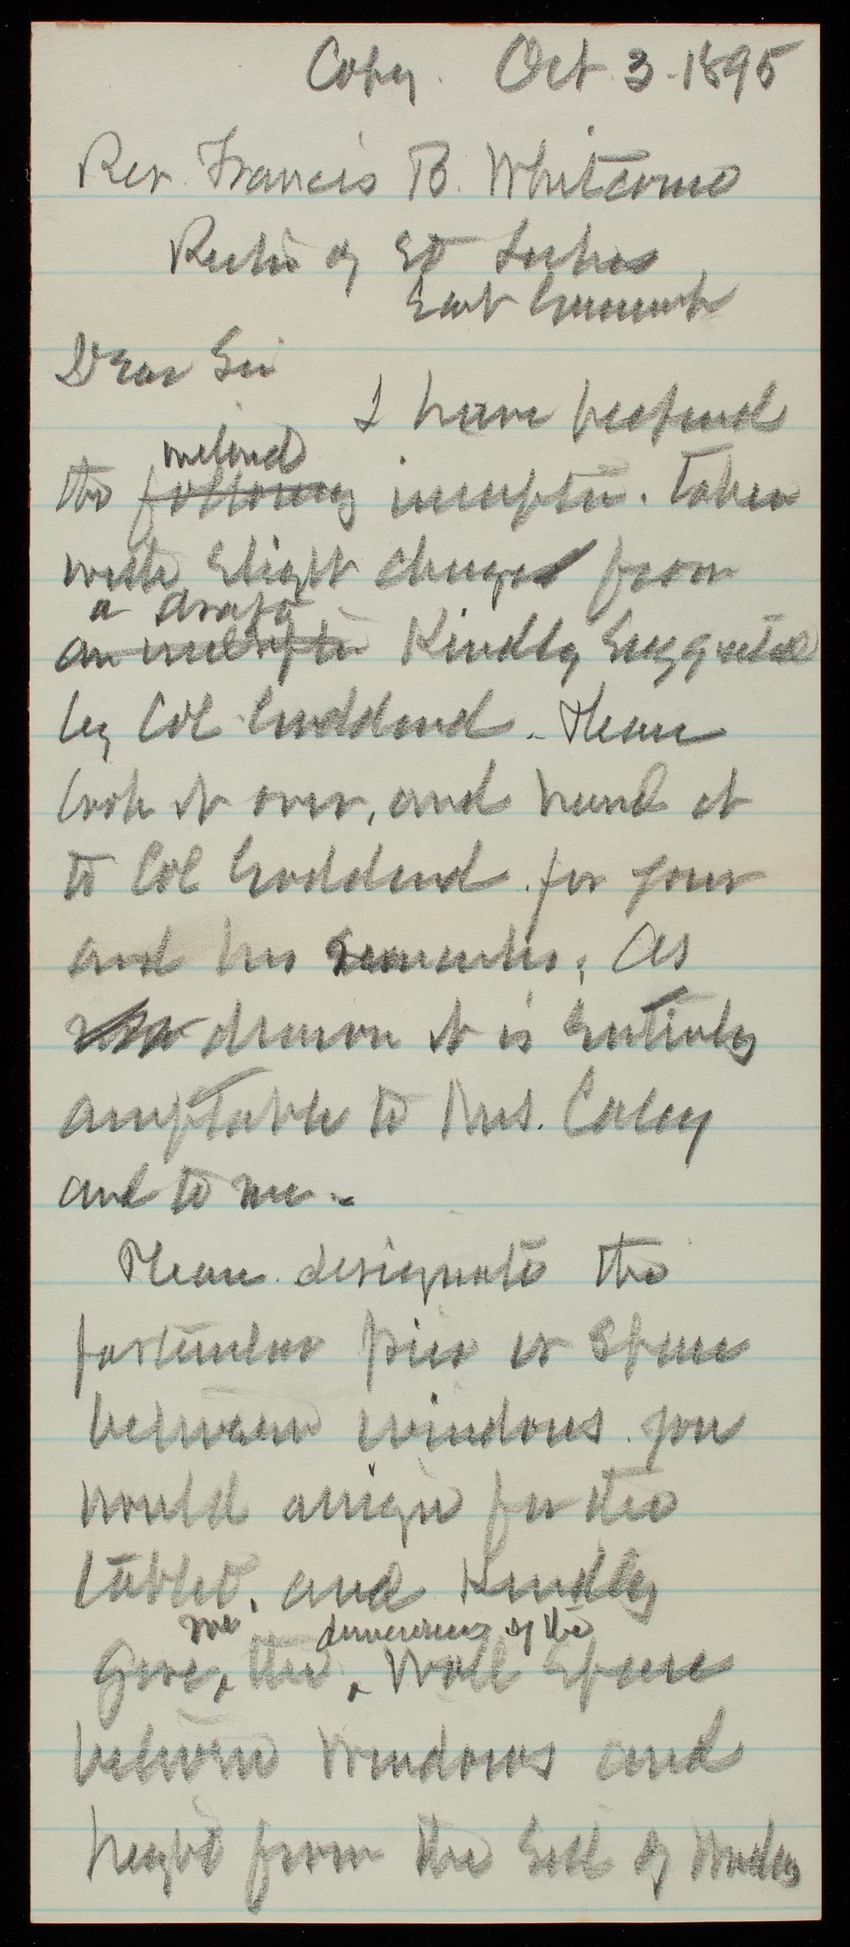 Copy. Oct 3 - 1895
Rev. Francis B. Whitcome
Rector of St Lukes
East Greenwich
Dear Sir
I have prepared
enclosed
the following inscription. taken
with slight changes from
a draft
an inscription Kindly suggested
by Col Goddard. Please
look it over, and hand it
to Col Goddard for your
and his remarks; As
drawn it is Entirely
acceptable to Mrs. Casey
and to me.
Please designate the
particular pier or space
between windows you
would assign for the
tablet, and Kindly
me dimensions of the
Give the Wall Space
between windows and
height from the Sill of